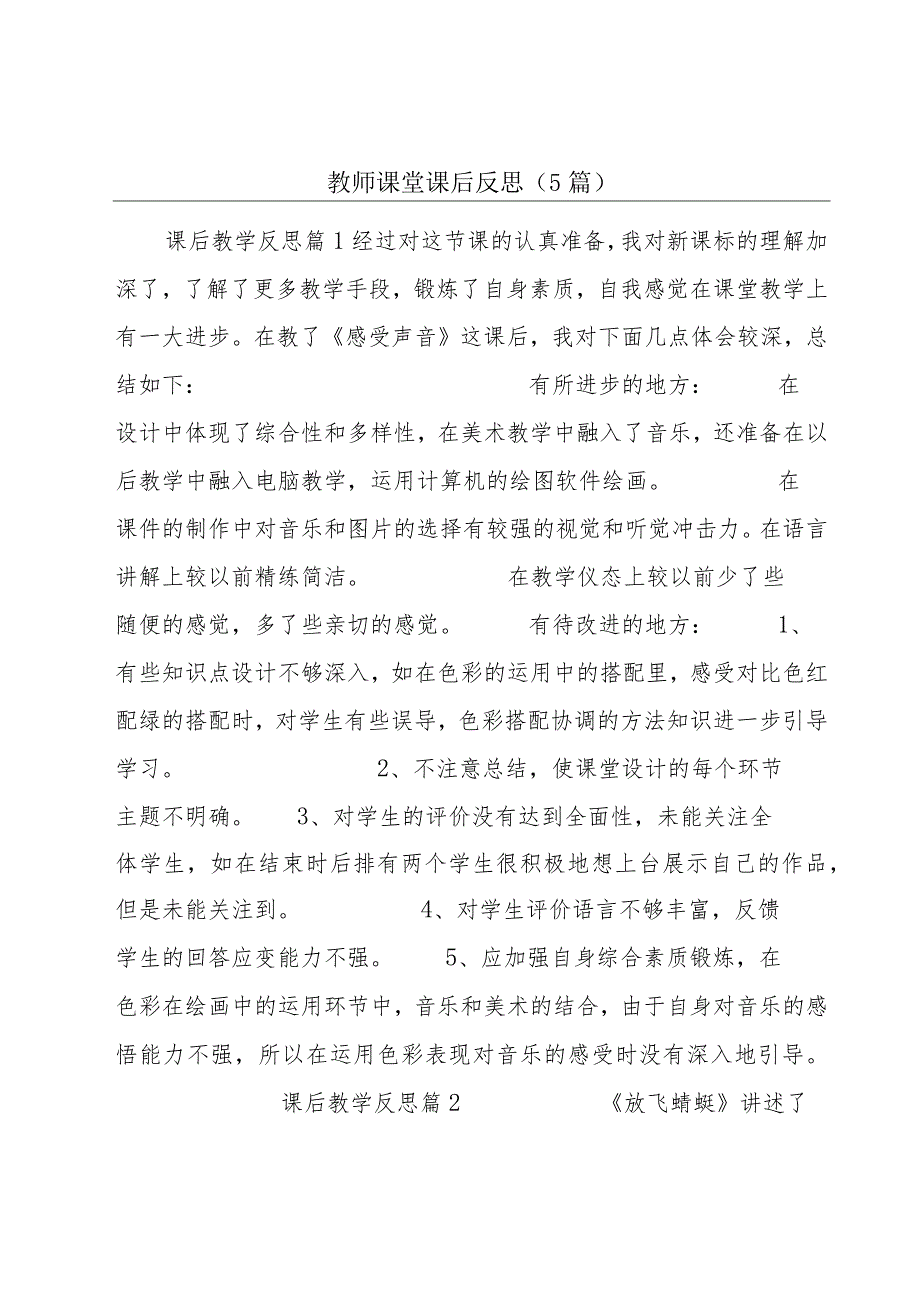 教师课堂课后反思（5 篇）
课后教学反思篇 1 经过对这节课的认真准备，我对新课标的理解加
深了，了解了更多教学手段，锻炼了自身素质，自我感觉在课堂教学上
有一大进步。在教了《感受声音》这课后，我对下面几点体会较深，总
结如下： 有所进步的地方： 在
设计中体现了综合性和多样性，在美术教学中融入了音乐，还准备在以
后教学中融入电脑教学，运用计算机的绘图软件绘画。 在
课件的制作中对音乐和图片的选择有较强的视觉和听觉冲击力。在语言
讲解上较以前精练简洁。 在教学仪态上较以前少了些
随便的感觉，多了些亲切的感觉。 有待改进的地方： 1、
有些知识点设计不够深入，如在色彩的运用中的搭配里，感受对比色红
配绿的搭配时，对学生有些误导，色彩搭配协调的方法知识进一步引导
学习。 2、不注意总结，使课堂设计的每个环节
主题不明确。 3、对学生的评价没有达到全面性，未能关注全
体学生，如在结束时后排有两个学生很积极地想上台展示自己的作品，
但是未能关注到。 4、对学生评价语言不够丰富，反馈
学生的回答应变能力不强。 5、应加强自身综合素质锻炼，在
色彩在绘画中的运用环节中，音乐和美术的结合，由于自身对音乐的感
悟能力不强，所以在运用色彩表现对音乐的感受时没有深入地引导。
课后教学反思篇 2 《放飞蜻蜓》讲述了